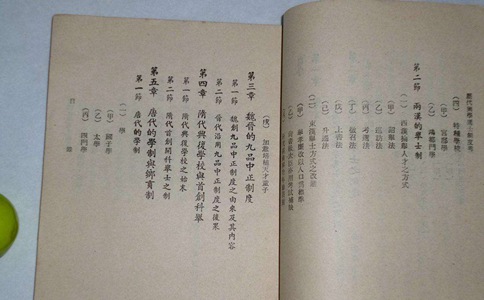 歷代興學選士制度考
（四）特種學校
（甲）宮邸學
（乙）鴻都門學
第二節　兩漢的舉士制
（一）西漢選舉人才之方式
（甲）詔舉法
（乙）巡舉法
（丙）考選法
（丁）徵召法
（戊）上書法
（己）升進法
（二）東漢舉士方式之改進
（甲）舉孝廉改以人口為標準
（戊）加緊培植天才童子
第三章　魏晉的九品中正制度
第一節　魏創九品中正制度之由來及其內容
第二節　晉代沿用九品中正制度之後果
第四章　隋代興復學校與首創科舉
第一節　隋代興復學校之始末
第二節　隋代首創開科舉士之制
第五章　唐代的學制與鄉貢制
第一節　唐代的學制
（一）學
（甲）國子學
（乙）太學
（丙）四門學
目　錄